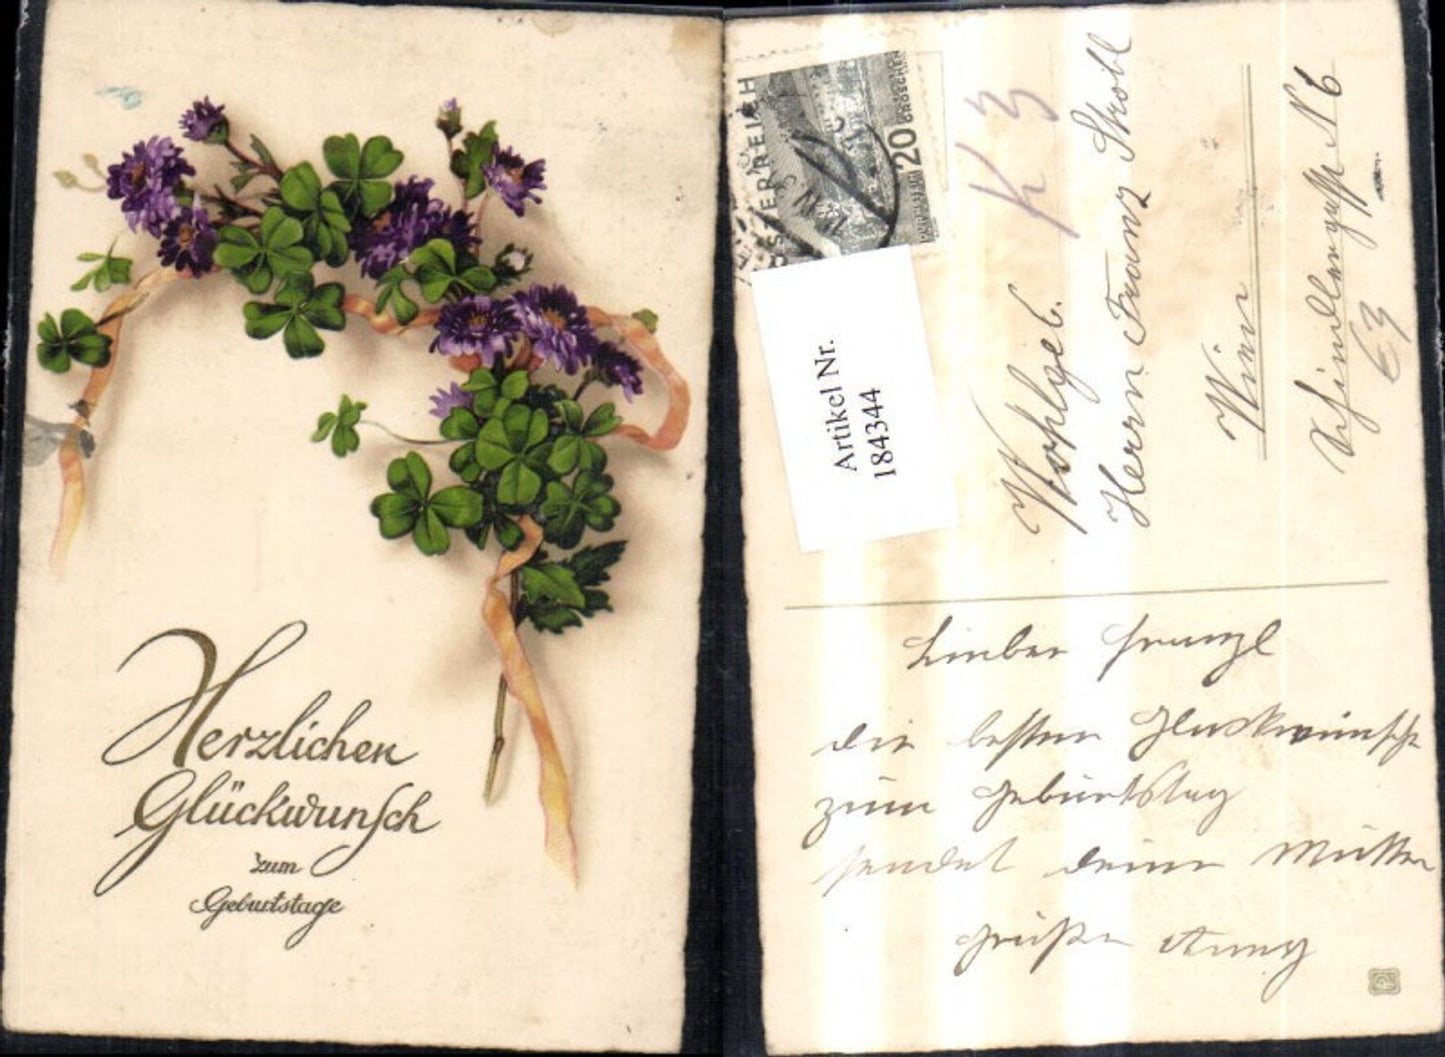 Herzlichen
Glückwunsch
zum
Geburtstage
ÖSTERREICH
20
GROSCHEN
Artikel Nr.
184344
K 3
Wohlgeb.
Herrn Franz Stroll
Wien
N 6
63
Lieber Franzl
die besten Gluckwünsche
zum Geburtstag
sendet deine Mutter
Grüße Anny